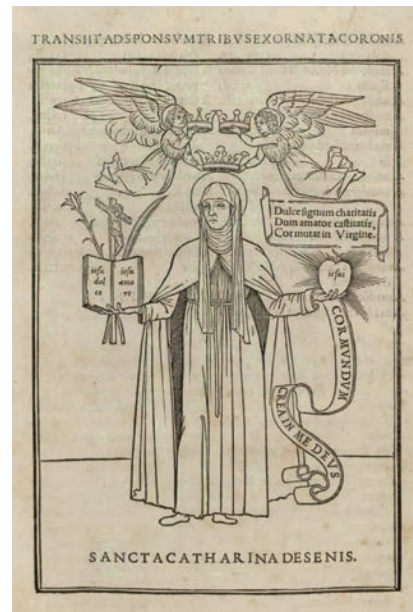 TRANSIIT AD SPONSVM TRIBVS EXORNATA CORONIS
Dulce signum charitatis
Dum amator castitatis,
Cor mutat in Virgine.
iesu
dol
ce
iesu
amo
re
iesus
COR MVNDVM
CREA IN ME DEVS
SANCTA CATHARINA DE SENIS.